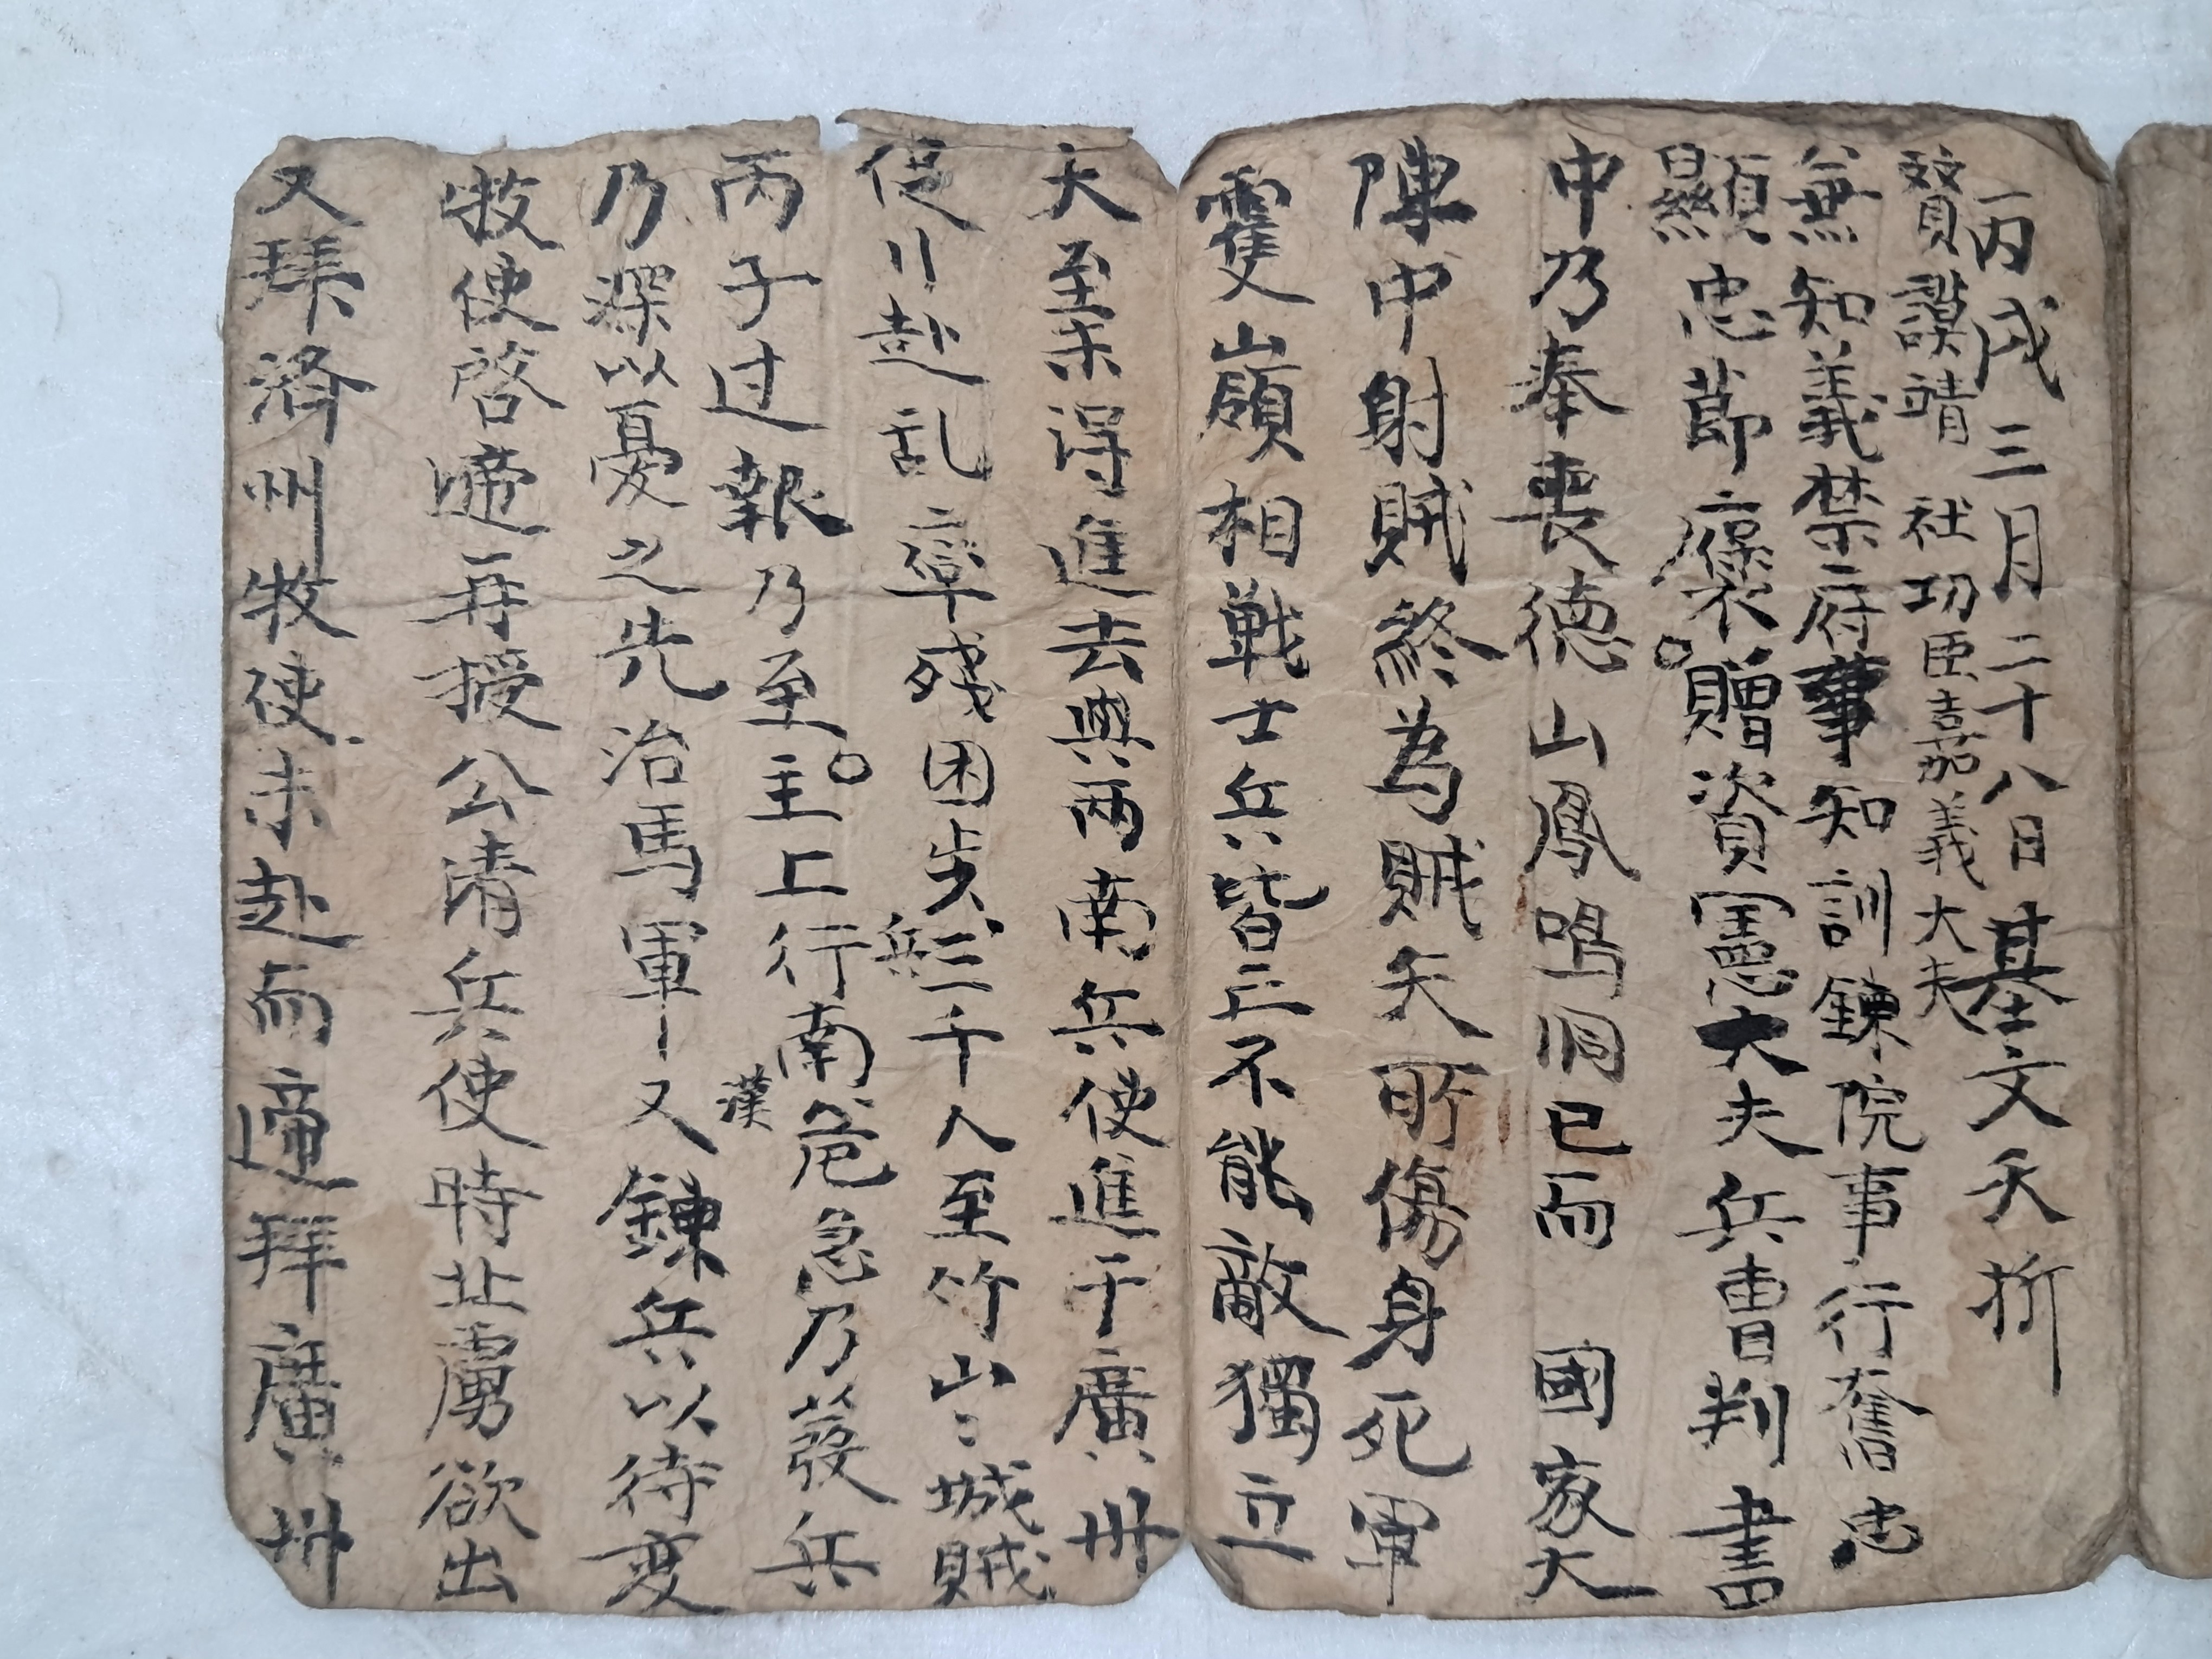 又拜济州牧使未赴而遞拜廣州
牧使啓遞再授公清兵使時北虜欲出
乃深以憂之先治馬軍又鍊兵以待变
丙子过報乃至主上行南漢危急乃發兵
從赴乱率殘困步兵三千人至竹山〻城賊
大至未得進去與兩南兵使進于廣州
雙嶺相戦士兵皆亡不能敵獨立
陣中射賊終為賊矢所傷身死軍
中乃奉喪德山鳳鳴洞已而 國家大
顯忠節褒○贈資憲大夫兵曹判書
兼知義禁府事知訓鍊院事行奮忠
賛謨靖社功臣嘉義大夫
丙戌三月二十八日基文夭折